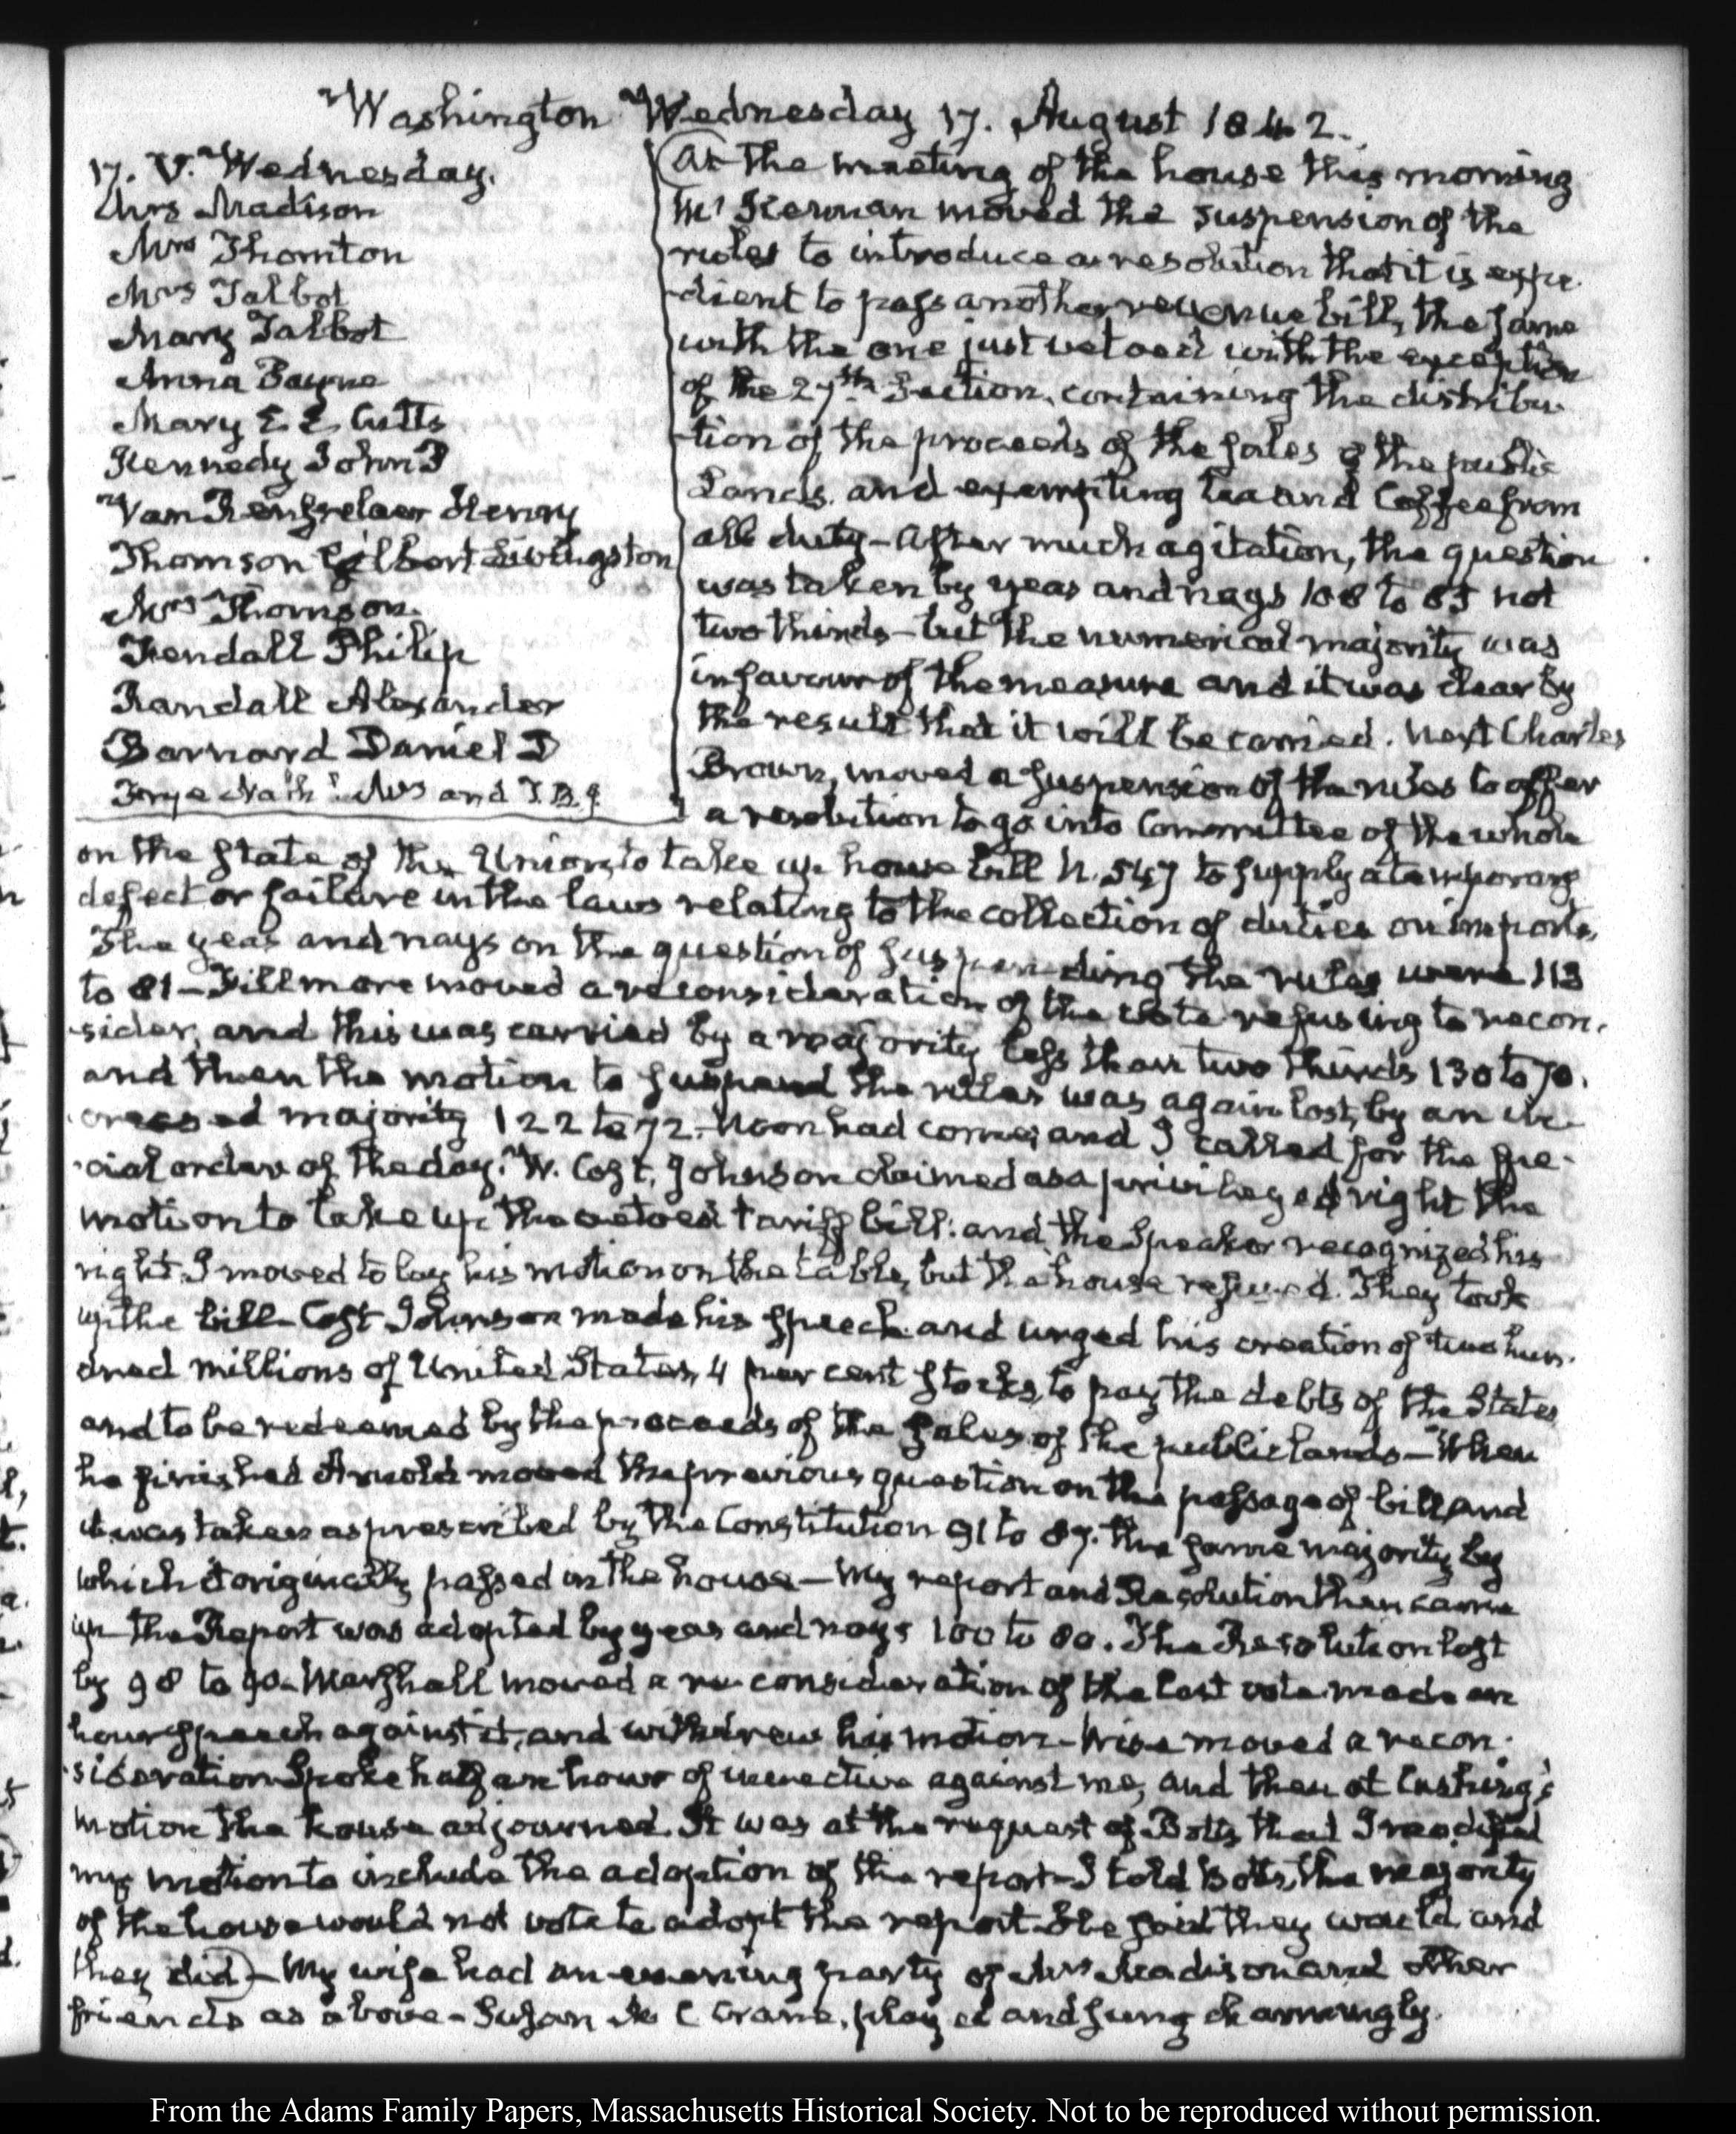 Washington Wednesday 17. August 1842.
17. V. Wednesday.
Mrs Madison
Mrs Thornton
Mrs Talbot
Mary Talbot
Anna Payne
Mary E E Cutts
Kennedy John P
Van Rensselaer Henry
Thomson Gilbert Livingston
Mrs Thomson.
Kendall Philip
Randall Alexander
Barnard Daniel D
Mrs and
At the meeting of the house this morning
Mr Keernan moved the suspension of the
rules to introduce a resolution that it is expe-
dient to pass another revenue bill, the same
with the one just vetoed with the exception
of the 27th. Section, containing the distribu-
tion of the proceeds of the sales of the public
Lands. and exempting tea and Coffee from
all duty—After much agitation, the question
was taken by yeas and nays 108 to 85 not
two thirds—but the numerical majority was
in favour of the measure and it was clear by
the result that it will be carried. Next Charles
Brown, moved a suspension of the rules to offer
a resolution to go into Committee of the whole
on the State of the Union, to take up house bill N. 547 to supply a temporary
defect or failure in the laws relating to the collection of duties on imports,
The yeas and nays on the question of suspending the rules were 113
to 81—Fillmore moved a reconsideration of the vote refusing to recon-
sider, and this was carried by a majority less than two thirds 130 to 70.
and then the motion to suspend the rules was again lost, by an in-
creased majority 122 to 72. Noon had come, and I called for the spe-
cial order of the day. W. Cost. Johnson claimed as a privileged right the
motion to take up the vetoed tariff bill: and the Speaker recognized his
right. I moved to lay his motion on the table, but the house refused. They took
up the bill—Cost Johnson made his speech and urged his creation of two hun-
dred millions of United States, 4 per cent Stocks, to pay the debts of the States
and to be redeemed by the proceeds of the sales of the public lands—When
he finished Arnold moved the previous question on the passage of bill, and
it was taken as prescribed by the Constitution 91 to 87. the same majority by
which it originally passed in the house—My report and Resolution then came
up the Report was adopted by yeas and nays 100 to 80. The Resolution lost
by 98 to 90. Marshall moved a re-consideration of the last vote made an
hour speech against it, and withdrew his motion—Wise moved a recon-
sideration Spoke half an hour of invective against me, and then at Cushing's
motion the house adjourned. It was at the request of Botts, that I modified
my motion to include the adoption of the report—I told Botts, the majority
of the house would not vote to adopt the report. He said they would and
they did—My wife had an evening party of Mrs Madison and other
friends as above—Susan M C Crane, played and sung charmingly.
From the Adams Family Papers, Massachusetts Historical Society. Not to be reproduced without permission.